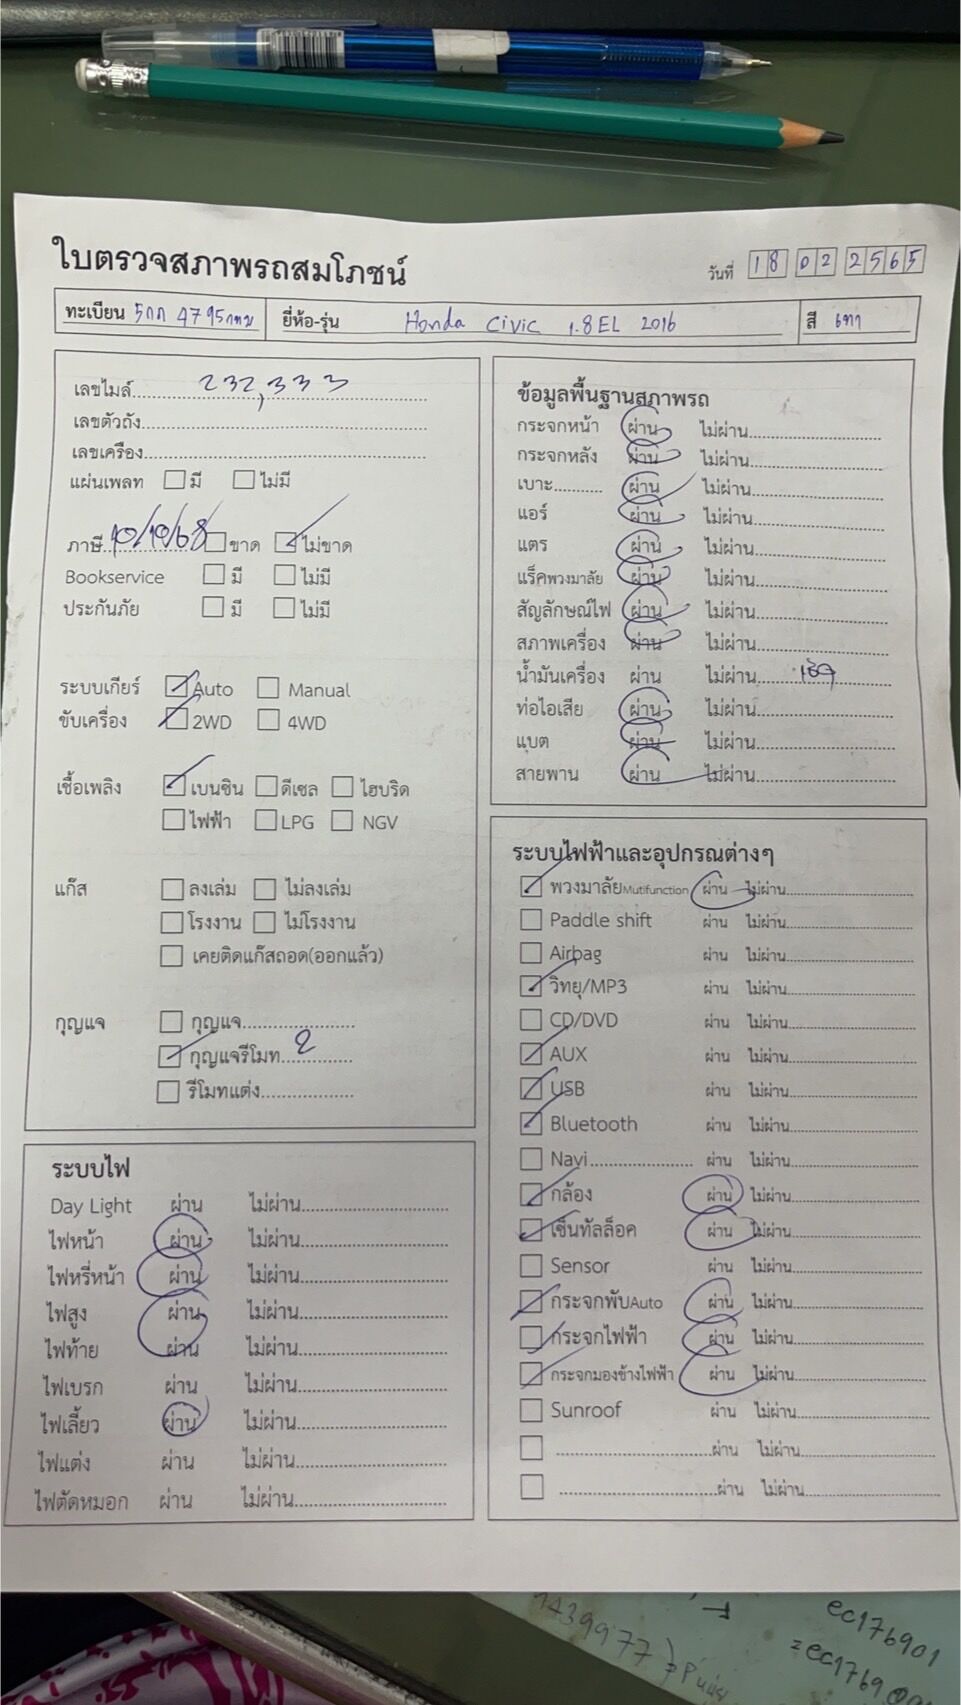 ใบตรวจสภาพรถสมโภชน์
วันที่ 18 02 2565
ทะเบียน 5กก 4795กทม ยี่ห้อ-รุ่น Honda civic 1.8EL 2016 สี เทา
เลขไมล์ 232,333
เลขตัวถัง
เลขเครื่อง
แผ่นเพลท มี ไม่มี
ภาษี 10/10/68 ขาด ไม่ขาด
Bookservice มี ไม่มี
ประกันภัย มี ไม่มี
ระบบเกียร์ Auto Manual
ขับเครื่อง 2WD 4WD
เชื้อเพลิง เบนซิน ดีเซล ไฮบริด
ไฟฟ้า LPG NGV
แก๊ส ลงเล่ม ไม่ลงเล่ม
โรงงาน ไม่โรงงาน
เคยติดแก๊สถอด(ออกแล้ว)
กุญแจ กุญแจ
กุญแจรีโมท 2
รีโมทแต่ง
ระบบไฟ
Day Light ผ่าน ไม่ผ่าน
ไฟหน้า ผ่าน ไม่ผ่าน
ไฟหรี่หน้า ผ่าน ไม่ผ่าน
ไฟสูง ผ่าน ไม่ผ่าน
ไฟท้าย ผ่าน ไม่ผ่าน
ไฟเบรก ผ่าน ไม่ผ่าน
ไฟเลี้ยว ผ่าน ไม่ผ่าน
ไฟแต่ง ผ่าน ไม่ผ่าน
ไฟตัดหมอก ผ่าน ไม่ผ่าน
ข้อมูลพื้นฐานสภาพรถ
กระจกหน้า ผ่าน ไม่ผ่าน
กระจกหลัง ผ่าน ไม่ผ่าน
เบาะ ผ่าน ไม่ผ่าน
แอร์ ผ่าน ไม่ผ่าน
แตร ผ่าน ไม่ผ่าน
แร็คพวงมาลัย ผ่าน ไม่ผ่าน
สัญลักษณ์ไฟ ผ่าน ไม่ผ่าน
สภาพเครื่อง ผ่าน ไม่ผ่าน
น้ำมันเครื่อง ผ่าน ไม่ผ่าน
ท่อไอเสีย ผ่าน ไม่ผ่าน
แบต ผ่าน ไม่ผ่าน
สายพาน ผ่าน ไม่ผ่าน
ระบบไฟฟ้าและอุปกรณต่างๆ
พวงมาลัยMutifunction ผ่าน ไม่ผ่าน
Paddle shift ผ่าน ไม่ผ่าน
Airbag ผ่าน ไม่ผ่าน
วิทยุ/MP3 ผ่าน ไม่ผ่าน
CD/DVD ผ่าน ไม่ผ่าน
AUX ผ่าน ไม่ผ่าน
USB ผ่าน ไม่ผ่าน
Bluetooth ผ่าน ไม่ผ่าน
Navi ผ่าน ไม่ผ่าน
กล้อง ผ่าน ไม่ผ่าน
เซ็นทัลล็อค ผ่าน ไม่ผ่าน
Sensor ผ่าน ไม่ผ่าน
กระจกพับAuto ผ่าน ไม่ผ่าน
กระจกไฟฟ้า ผ่าน ไม่ผ่าน
กระจกมองข้างไฟฟ้า ผ่าน ไม่ผ่าน
Sunroof ผ่าน ไม่ผ่าน
ผ่าน ไม่ผ่าน
ผ่าน ไม่ผ่าน
ec176901